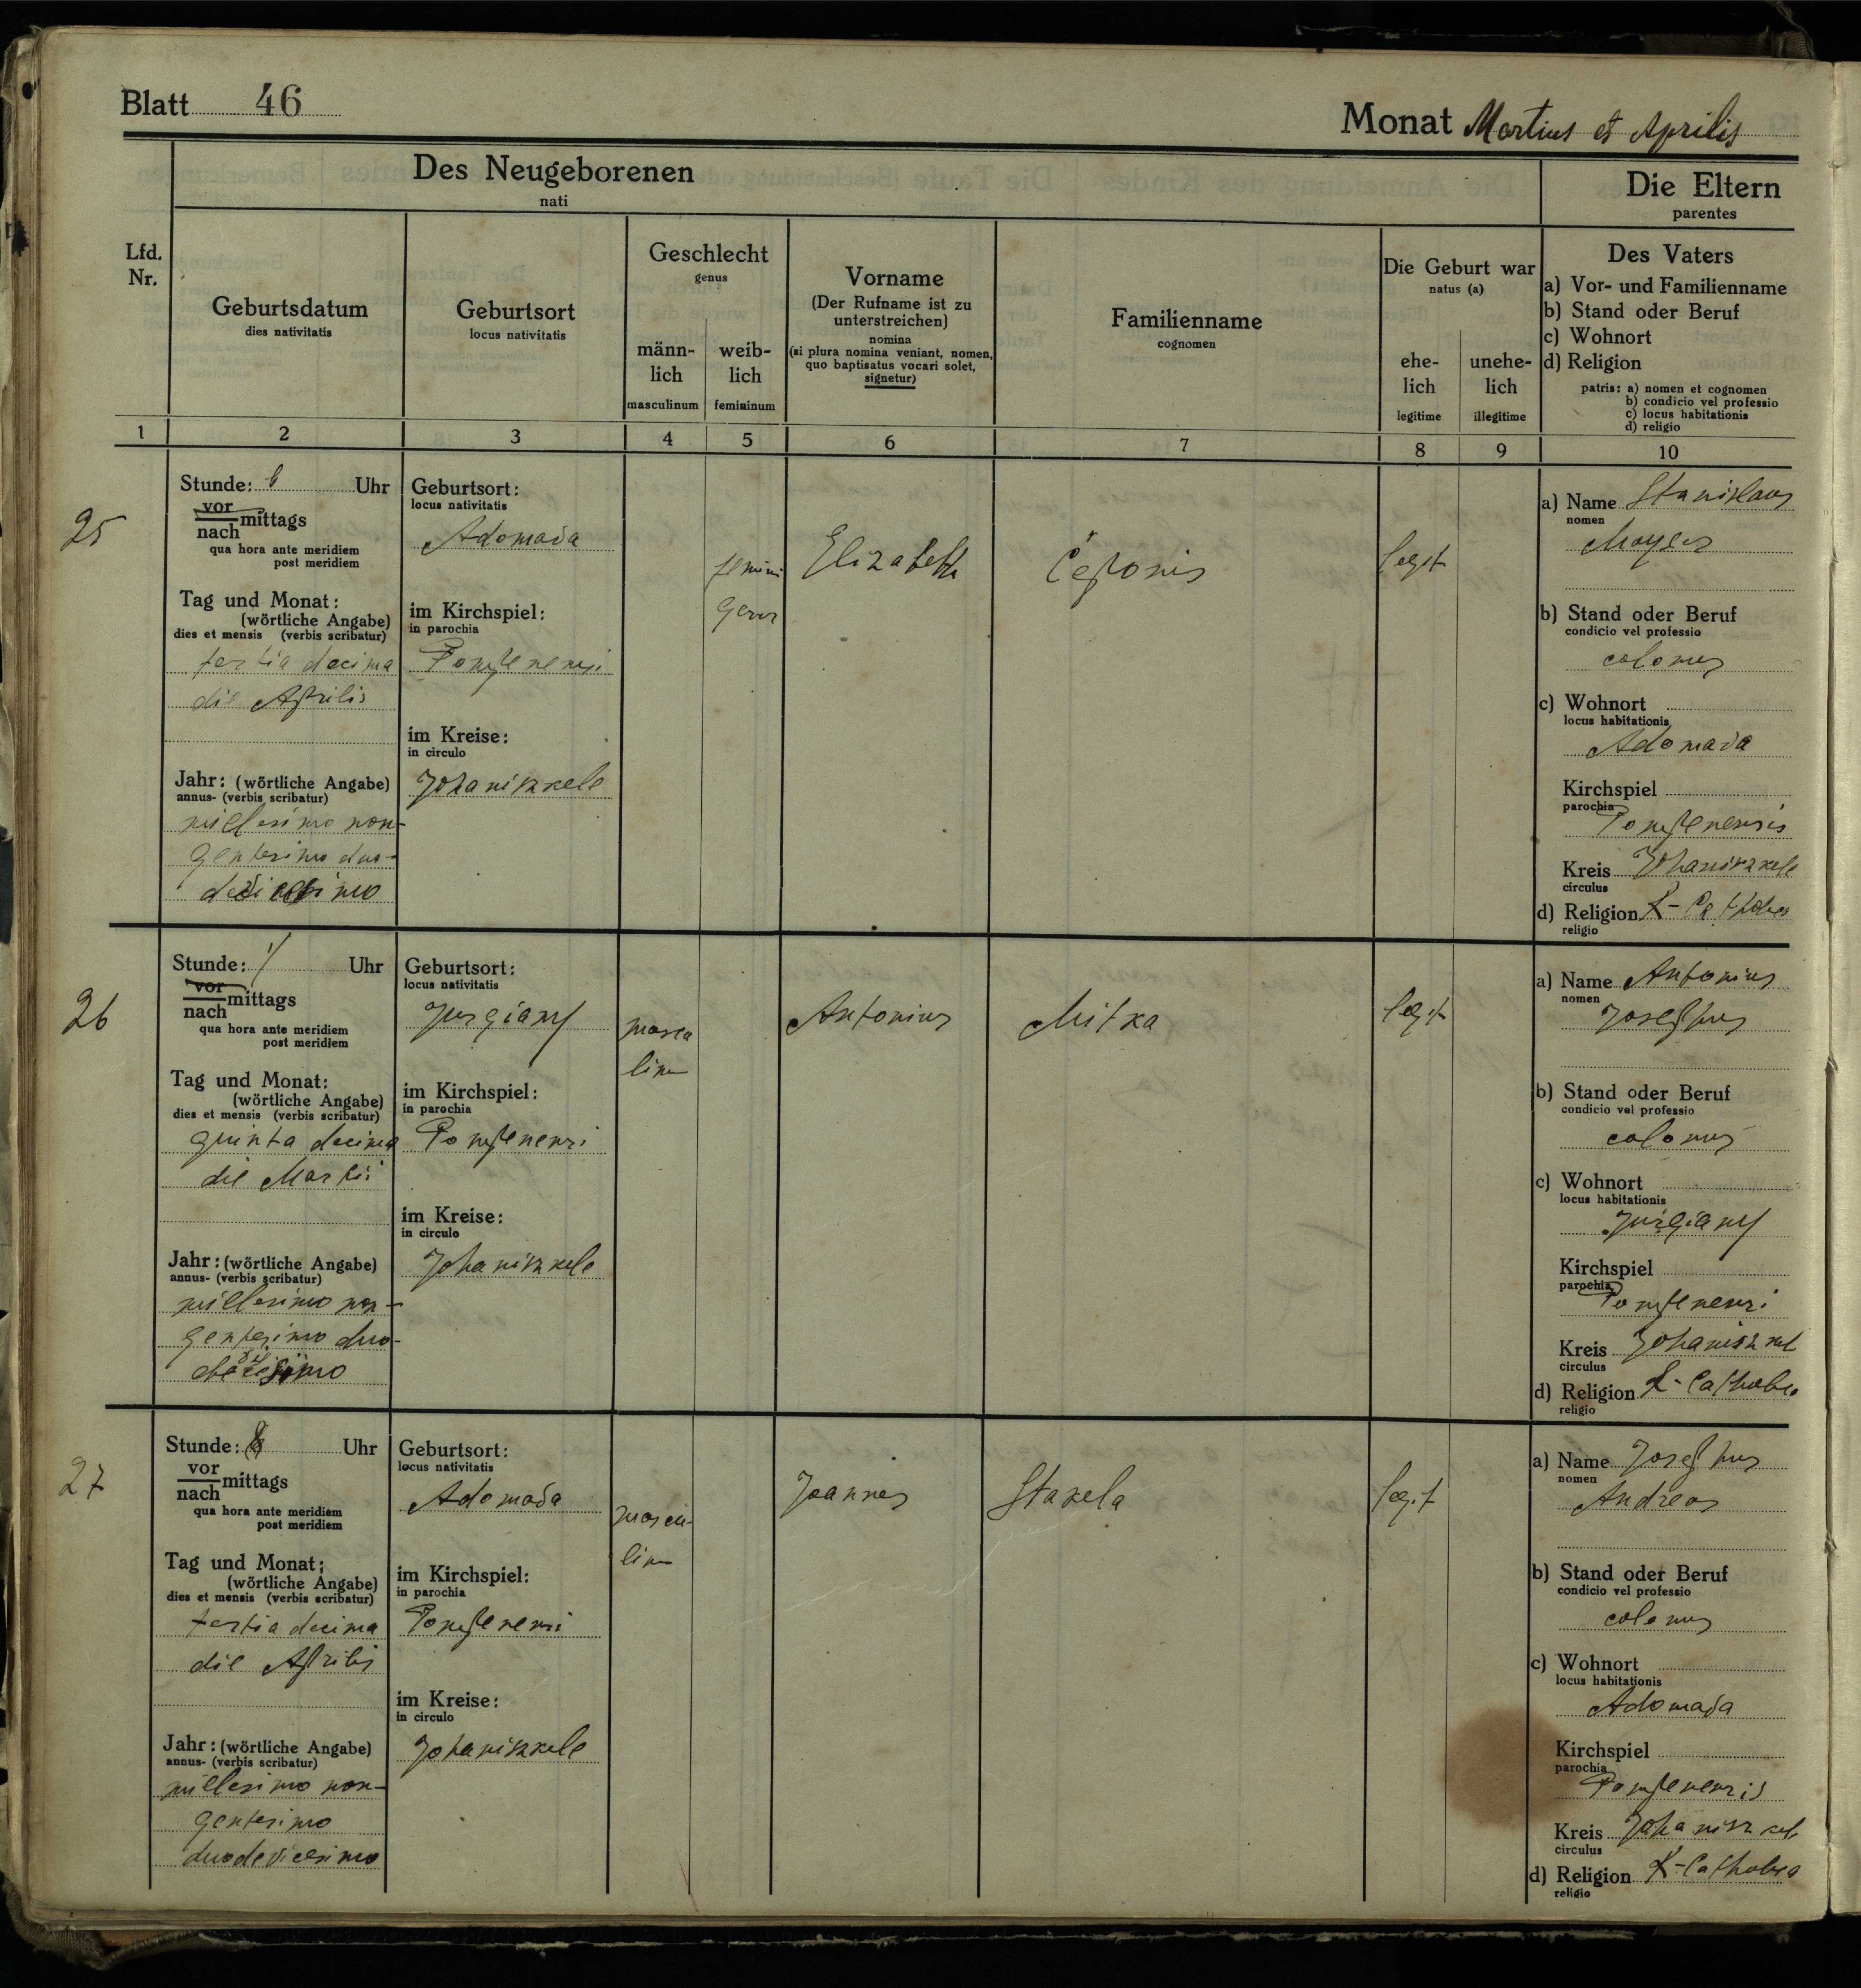 Blatt 46
Monat Martius et Aprilis
Des Neugeborenen
nati
Die Eltern
parentes
Lfd.
Nr.
Geburtsdatum
dies nativitatis
Geburtsort
locus nativitatis
Geschlecht
genus
männ-
lich
masculinum
weib-
lich
femininum
Vorname
(Der Rufname ist zu
unterstreichen)
nomina
(si plura nomina veniant, nomen,
quo baptisatus vocari solet,
signetur)
Familienname
cognomen
Die Geburt war
natus (a)
ehe-
lich
legitime
unehe-
lich
illegitime
Des Vaters
a) Vor- und Familienname
b) Stand oder Beruf
c) Wohnort
d) Religion
patris: a) nomen et cognomen
b) condicio vel professio
c) locus habitationis
d) religio
1 2 3 4 5 6 7 8 9 10
25
Stunde: 6 Uhr
vor
mittags
nach
qua hora ante meridiem
post meridiem
Tag und Monat:
(wörtliche Angabe)
dies et mensis (verbis scribatur)
tertia decima
die Aprilis
Jahr: (wörtliche Angabe)
annus- (verbis scribatur)
millesimo non-
gentesimo duo-
Geburtsort:
locus nativitatis
Adomava
im Kirchspiel:
in parochia
Pompenensi
im Kreise:
in circulo
Johaniszkele
femini
gener
Elizabeth
Čeponis
legit
a) Name Stanislaus
nomen
Moyses
b) Stand oder Beruf
condicio vel professio
colonus
c) Wohnort
locus habitationis
Adomava
Kirchspiel
parochia
Pompenensis
Kreis Johaniszkele
circulus
d) Religion R-Catholica
religio
26
Stunde: 1 Uhr
vor
mittags
nach
qua hora ante meridiem
post meridiem
Tag und Monat:
(wörtliche Angabe)
dies et mensis (verbis scribatur)
quinta decima
die Martii
Jahr: (wörtliche Angabe)
annus- (verbis scribatur)
millesimo non-
gentesimo duo-
Geburtsort:
locus nativitatis
Jurgiany
im Kirchspiel:
in parochia
Pompenensi
im Kreise:
in circulo
Johaniszkele
mascu
linu
Antonius
Mitka
legit
a) Name Antonius
nomen
Josephus
b) Stand oder Beruf
condicio vel professio
colonus
c) Wohnort
locus habitationis
Jurgiany
Kirchspiel
parochia
Pompenensi
Kreis Johaniszkel
circulus
d) Religion R-Catholica
religio
27
Stunde: Uhr
vor
mittags
nach
qua hora ante meridiem
post meridiem
Tag und Monat:
(wörtliche Angabe)
dies et mensis (verbis scribatur)
tertia decima
die Aprilis
Jahr: (wörtliche Angabe)
annus- (verbis scribatur)
millesimo non-
gentesimo
duodevicesimo
Geburtsort:
locus nativitatis
Adomava
im Kirchspiel:
in parochia
Pompenensi
im Kreise:
in circulo
Johaniszkele
mascu-
linu
Joannes
Stakela
legit
a) Name Josephus
nomen
Andreas
b) Stand oder Beruf
condicio vel professio
colonus
c) Wohnort
locus habitationis
Adomava
Kirchspiel
parochia
Pompenensis
Kreis Johaniszkel
circulus
d) Religion R-Catholica
religio